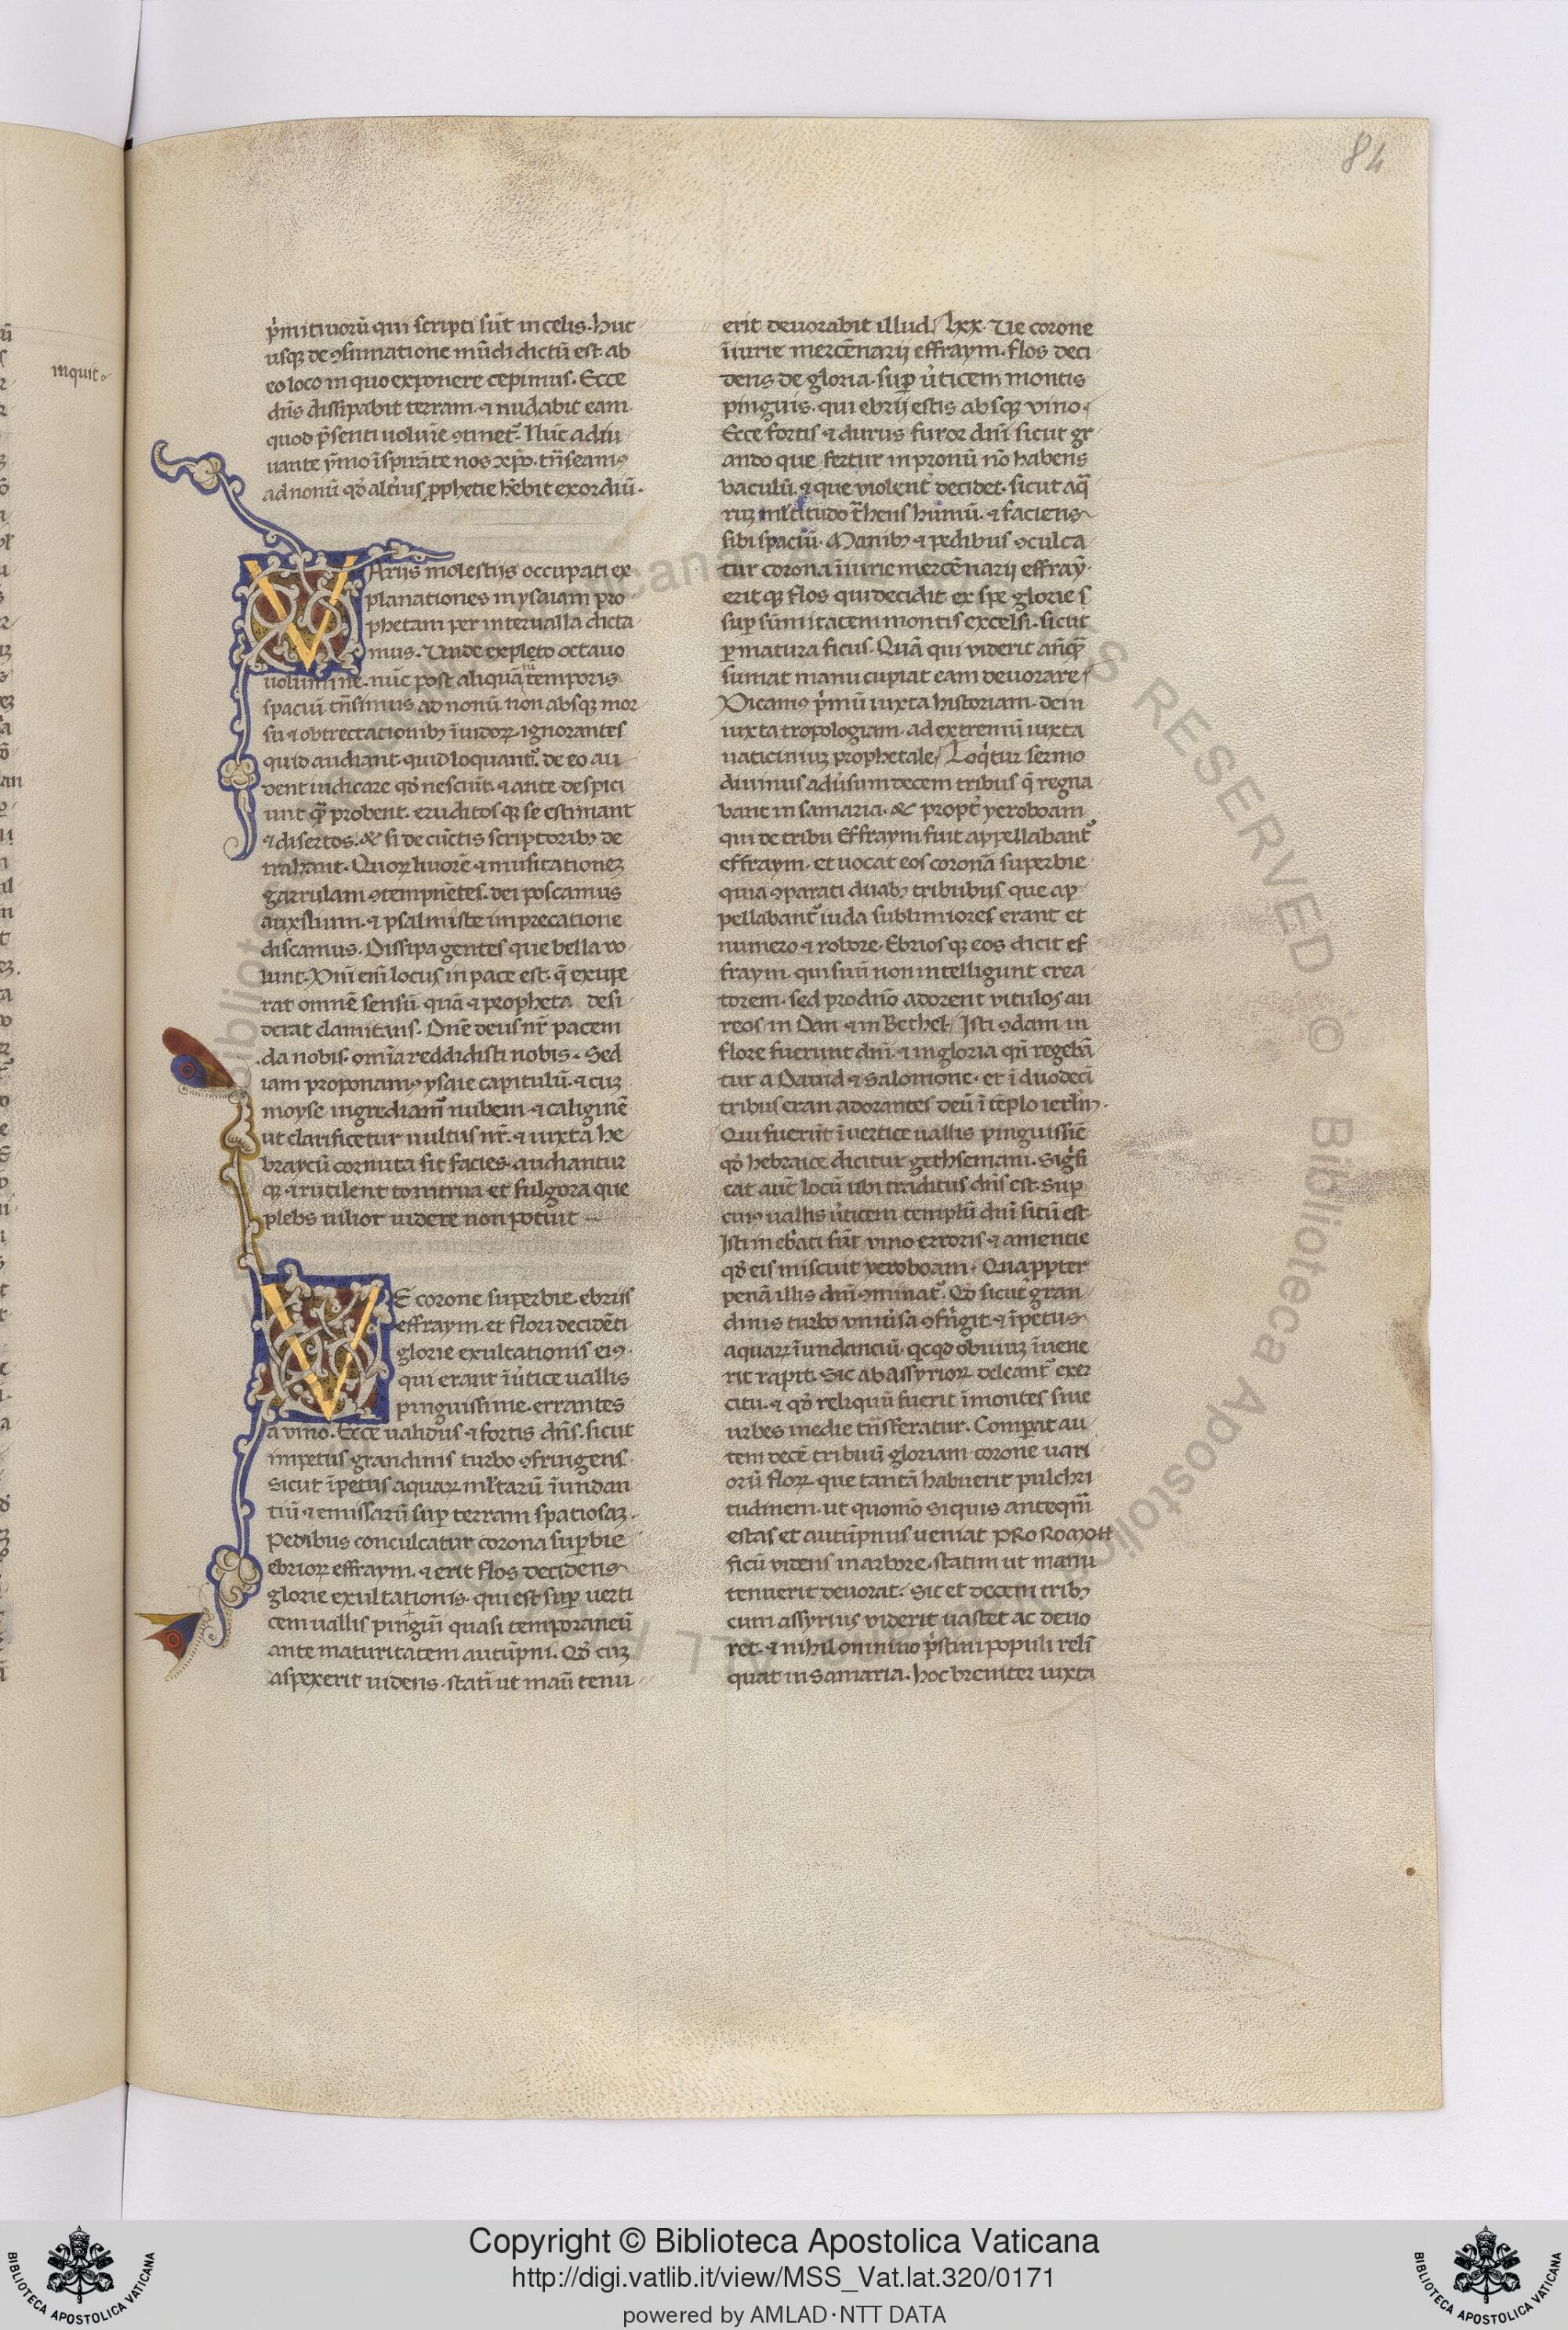 84
inquit
p̉mitiuorũ qui scripti sũt in celis. Huc
usqꝫ de ꝯsumatione mũdi dictũ est. ab
eo loco in quo exponere cepimus. Ecce
dñs dissipabit terram. ⁊ nudabit eam.
quod p̃senti uolũie ꝯtinet᷑. Nũc adiu
uante p̉mo ĩspirãte nos xp̃o. trãseamꝰ
ad nonũ qđ alti᷑us ꝓphetie hẽbit exordiũ.
VArijs molestijs occupati ex
planationes in ysaiam pro
phetam per interualla dicta
mus. Unde expleto octauo
uolumine. nũc post aliquãtũ temporis
spaciũ trãsimus ad nonũ non absqꝫ mor
su ⁊ obtrectationibꝫ ĩuidoꝝ. ignorantes
quid audiant. quid loquant᷑. de eo au
dent iudicare qđ nesciũt. ⁊ ante despici
unt q̃ꝫ probent. eruditos qꝫ se estimant
⁊ disertos. & si de cũctis scriptoribꝫ de
trahant. Quoꝝ liuorẽ ⁊ musitationeꝫ
garrulam ꝯtempnẽtes. dei poscamus
auxilium. ⁊ psalmiste imprecatione
discamus. Dissipa gentes que bella vo
lunt. Dñi eñi locus in pace est. q̃ exupe
rat omnẽ sensũ quã ⁊ propheta desi
derat clamitans. Dñe deus nr̃ pacem
da nobis. omĩa reddidisti nobis. Sed
iam proponamꝰ ysaie capitulũ. ⁊ cuꝫ
moyse ingrediam᷑ nubem ⁊ caliginẽ
ut clarificetur uultus nr̃. ⁊ iuxta he
braycũ cornuta fit facies. audiantur
qꝫ ⁊ rutilent tonitrua et fulgora que
plebs uilior uidere non potuit
VE corone superbie ebrijs
effraym. et flori decidẽti
glorie exultationis eiꝰ.
qui erant ĩ u̓tice uallis
pinguissime. errantes
a vino. Ecce ualidus ⁊ fortis dñs. sicut
impetus grandinis turbo ꝯfringens.
sicut ĩpetus aquaꝝ ml̃taruꝫ ĩundan
tiũ ⁊ emissarũ suꝑ terram spatiosaꝫ.
Pedibus conculcatur corona suꝑbie
ebrioꝝ effraym. ⁊ erit flos decidens
glorie exultationis. qui est suꝑ uerti
cem uallis pinguiũ quasi temporaneũ
ante maturitatem autũpni. Qđ cuꝫ
aspexerit uidens. stati᷑ ut manũ tenu
erit deuorabit illud. Lxx. Ue corone
ĩiurie mercẽnarij effraym. flos deci
dens de gloria. suꝑ u̓ticem montis
pinguis. qui ebrij estis absqꝫ vino.
Ecce fortis ⁊ durus furor dñi sicut gr
ando que fertur in pronũ nõ habens
baculũ. ⁊ que violent̓ decidet. sicut aq̃
ruꝫ ml̃titudo t̃hens humũ. ⁊ faciens
sibi spaciũ. Manibꝫ ⁊ pedibus ꝯculca
tur corona ĩiurie mercẽnarij effray̓.
erit qꝫ flos qui decidit ex spe glorie s
suꝑ sũmitatem montis excelsi. sicut
p̱matura ficus. Quã qui viderit añq̃ꝫ
sumat manu cupiat eam deuorare.
Dicamꝰ p̉mũ iuxta historiam. dein
iuxta tropologiam. ad extremũ iuxta
uaticiniuꝫ prophetale. Loq̉tur sermo
diuinus adu̓sum decem tribus q̃ regna
bant in samaria. & propt̓ yeroboam
qui de tribu Effraym fuit appellabant᷑
effraym. et uocat eos coronã superbie
quia ꝯparati duabꝫ tribubus que ap
pellabant᷑ iuda sublimiores erant et
numero ⁊ robore. Ebrios qꝫ eos dicit ef
fraym. qui suũ non intelligunt crea
torem. sed pro dño adorent vitulos au
reos in Dan ⁊ in Bethel. Isti ꝯdam in
flore fuerunt dñi. ⁊ in gloria qñ regebã
tur a Dauid ⁊ Salomone. et ĩ duodecĩ
tribus eran adorantes deũ ĩ tẽplo ierl̃m.
Qui fuerũt ĩ vertice uallis pinguissiẽ
qđ hebraice dicitur gethsemani. Sig̓fi
cat aut̃ locũ ubi traditus dñs est. Suꝑ
cuiꝰ uallis u̓ticem templũ dñi situ est.
Isti inebriati sũt vino erroris ⁊ amentie
qđ eis miscuit yeroboam. Quaꝓpter
penã illis dñi ꝯminat᷑. Qđ sicut gran
dinis turbo uniu̓sa ꝯfrĩgit. ⁊ ĩpetus
aquaꝝ ĩundanciũ. qicqd obuiuꝫ ĩuene
rit rapit. Sic ab assyrioꝝ deleant᷑ exer
citu. ⁊ qđ reliquũ fuerit ĩ montes siue
urbes medie trãsferatur. Comparat au
tem decẽ tribuũ gloriam corone uari
orũ floꝝ que tantã habuerit pulchri
tudinem. ut quomõ siquis anteq̃m
estas et autũpnus ueniat PRO ROMOH
ficũ videns in arbore. statim ut manu
tenuerit deuorat. Sic et decem tribꝫ
cum assyrius viderit uastet ac deuo
ret. ⁊ nihil omnino p̓stini populi relĩ
quat in Samaria. Hoc breuiter iuxta
Copyright © Biblioteca Apostolica Vaticana
http://digi.vatlib.it/view/MSS_Vat.lat.320/0171
powered by AMLAD·NTT DATA
BIBLIOTECA APOSTOLICA VATICANA
BIBLIOTECA APOSTOLICA VATICANA